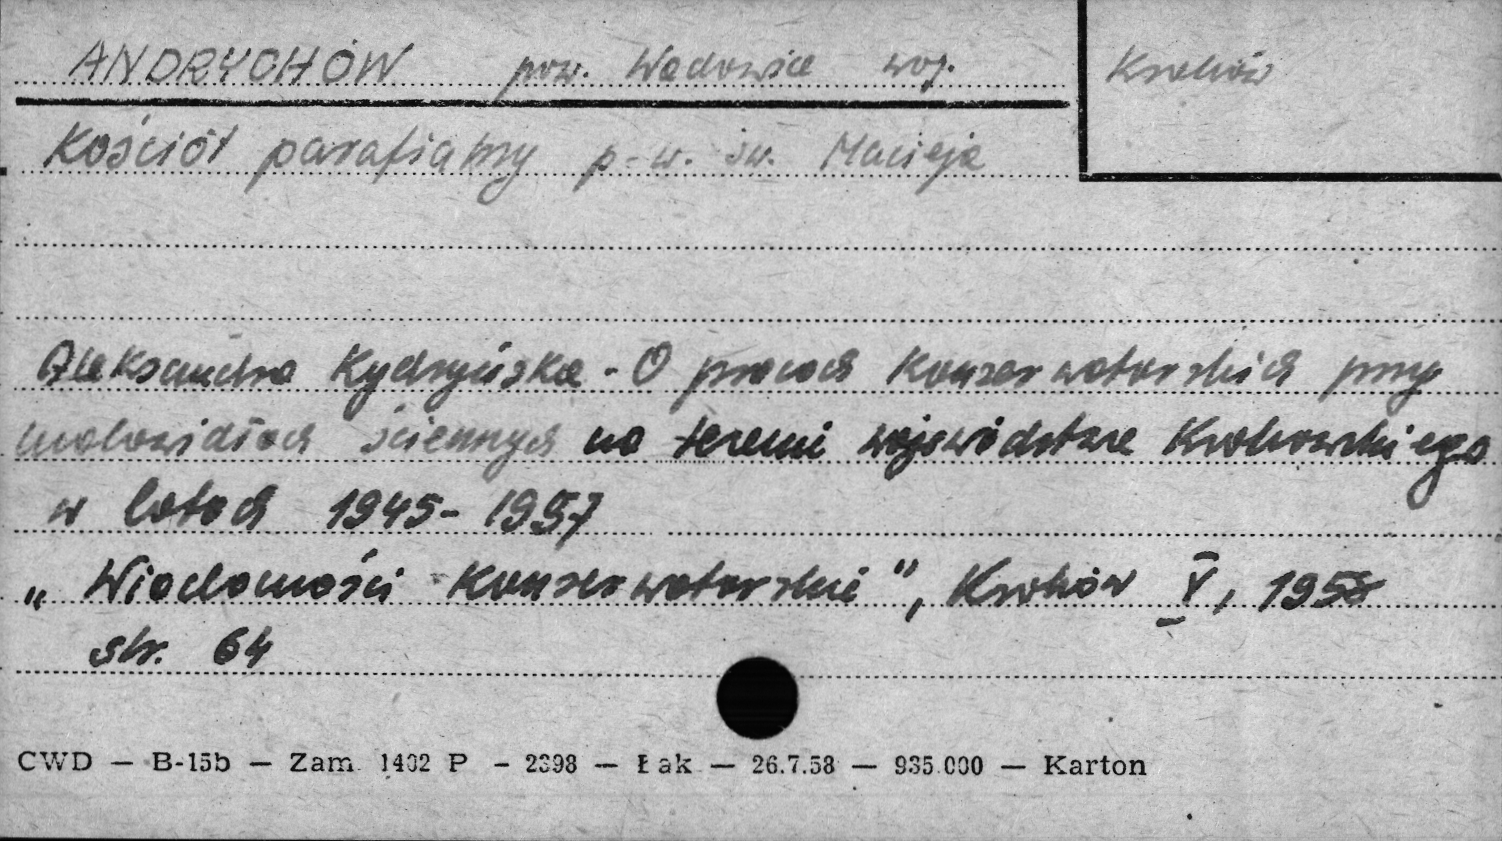 ANDRYCHÓW pow. Wadowice woj. Kraków
Kościół parafialny p.w. św. Macieja
Aleksandra Kydryńska - O pracach konserwatorskich przy
malowidłach ściennych na terenie województwa Krakowskiego
w latach 1945-1957
„Wiadomości Konserwatorskie", Kraków V, 1958
str. 64
CWD — B-15b — Zam. 1402 P - 2398 — Łak — 26.7.58 — 935.000 — Karton